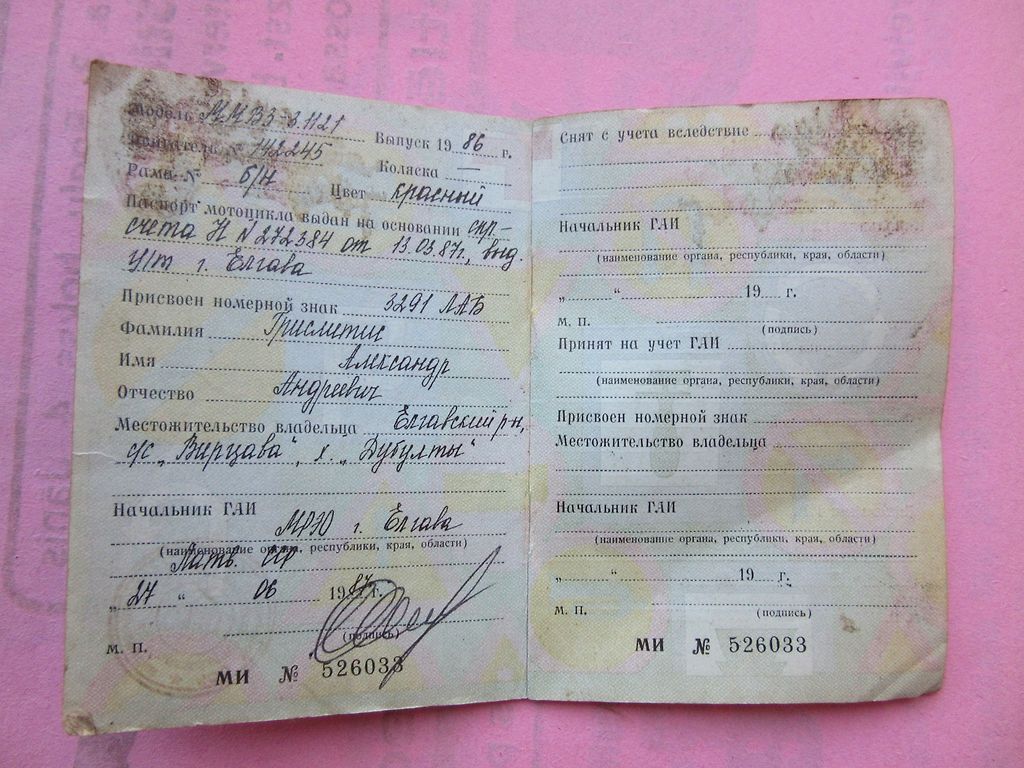 Модель ММВЗ-3.1121
Выпуск 19 86 г.
Двигатель № 142245
Коляска —
Рама № б/н Цвет красный
Паспорт мотоцикла выдан на основании спр-
счета N 272384 от 13.03.87г., выд.
г. Елгава
Присвоен номерной знак 3291 ЛАБ
Фамилия
Имя Александр
Отчество Андреевич
Местожительство владельца Елгавский р-н,
с/с „Вирцава", х. „Дубулты"
Начальник ГАИ
МРЭО г. Елгава
(наименование органа, республики, края, области)
Латв. ССР
„27" 06 1987 г.
(подпись)
М. П.
МИ № 526033
Снят с учета вследствие
Начальник ГАИ
(наименование органа, республики, края, области)
„ " 19 г.
М. П.
(подпись)
Принят на учет ГАИ
(наименование органа, республики, края, области)
Присвоен номерной знак
Местожительство владельца
Начальник ГАИ
(наименование органа, республики, края, области)
„ " 19 г.
М. П.
(подпись)
МИ № 526033